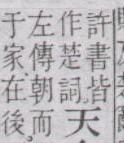 許書皆
作楚詞
天
左傳朝而
于家在後